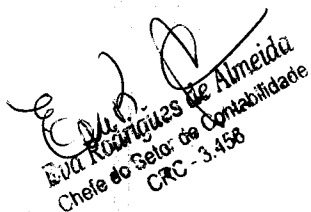 Eva Rodrigues de Almeida
Chefe do Setor de Contabilidade
CRC - 3.458